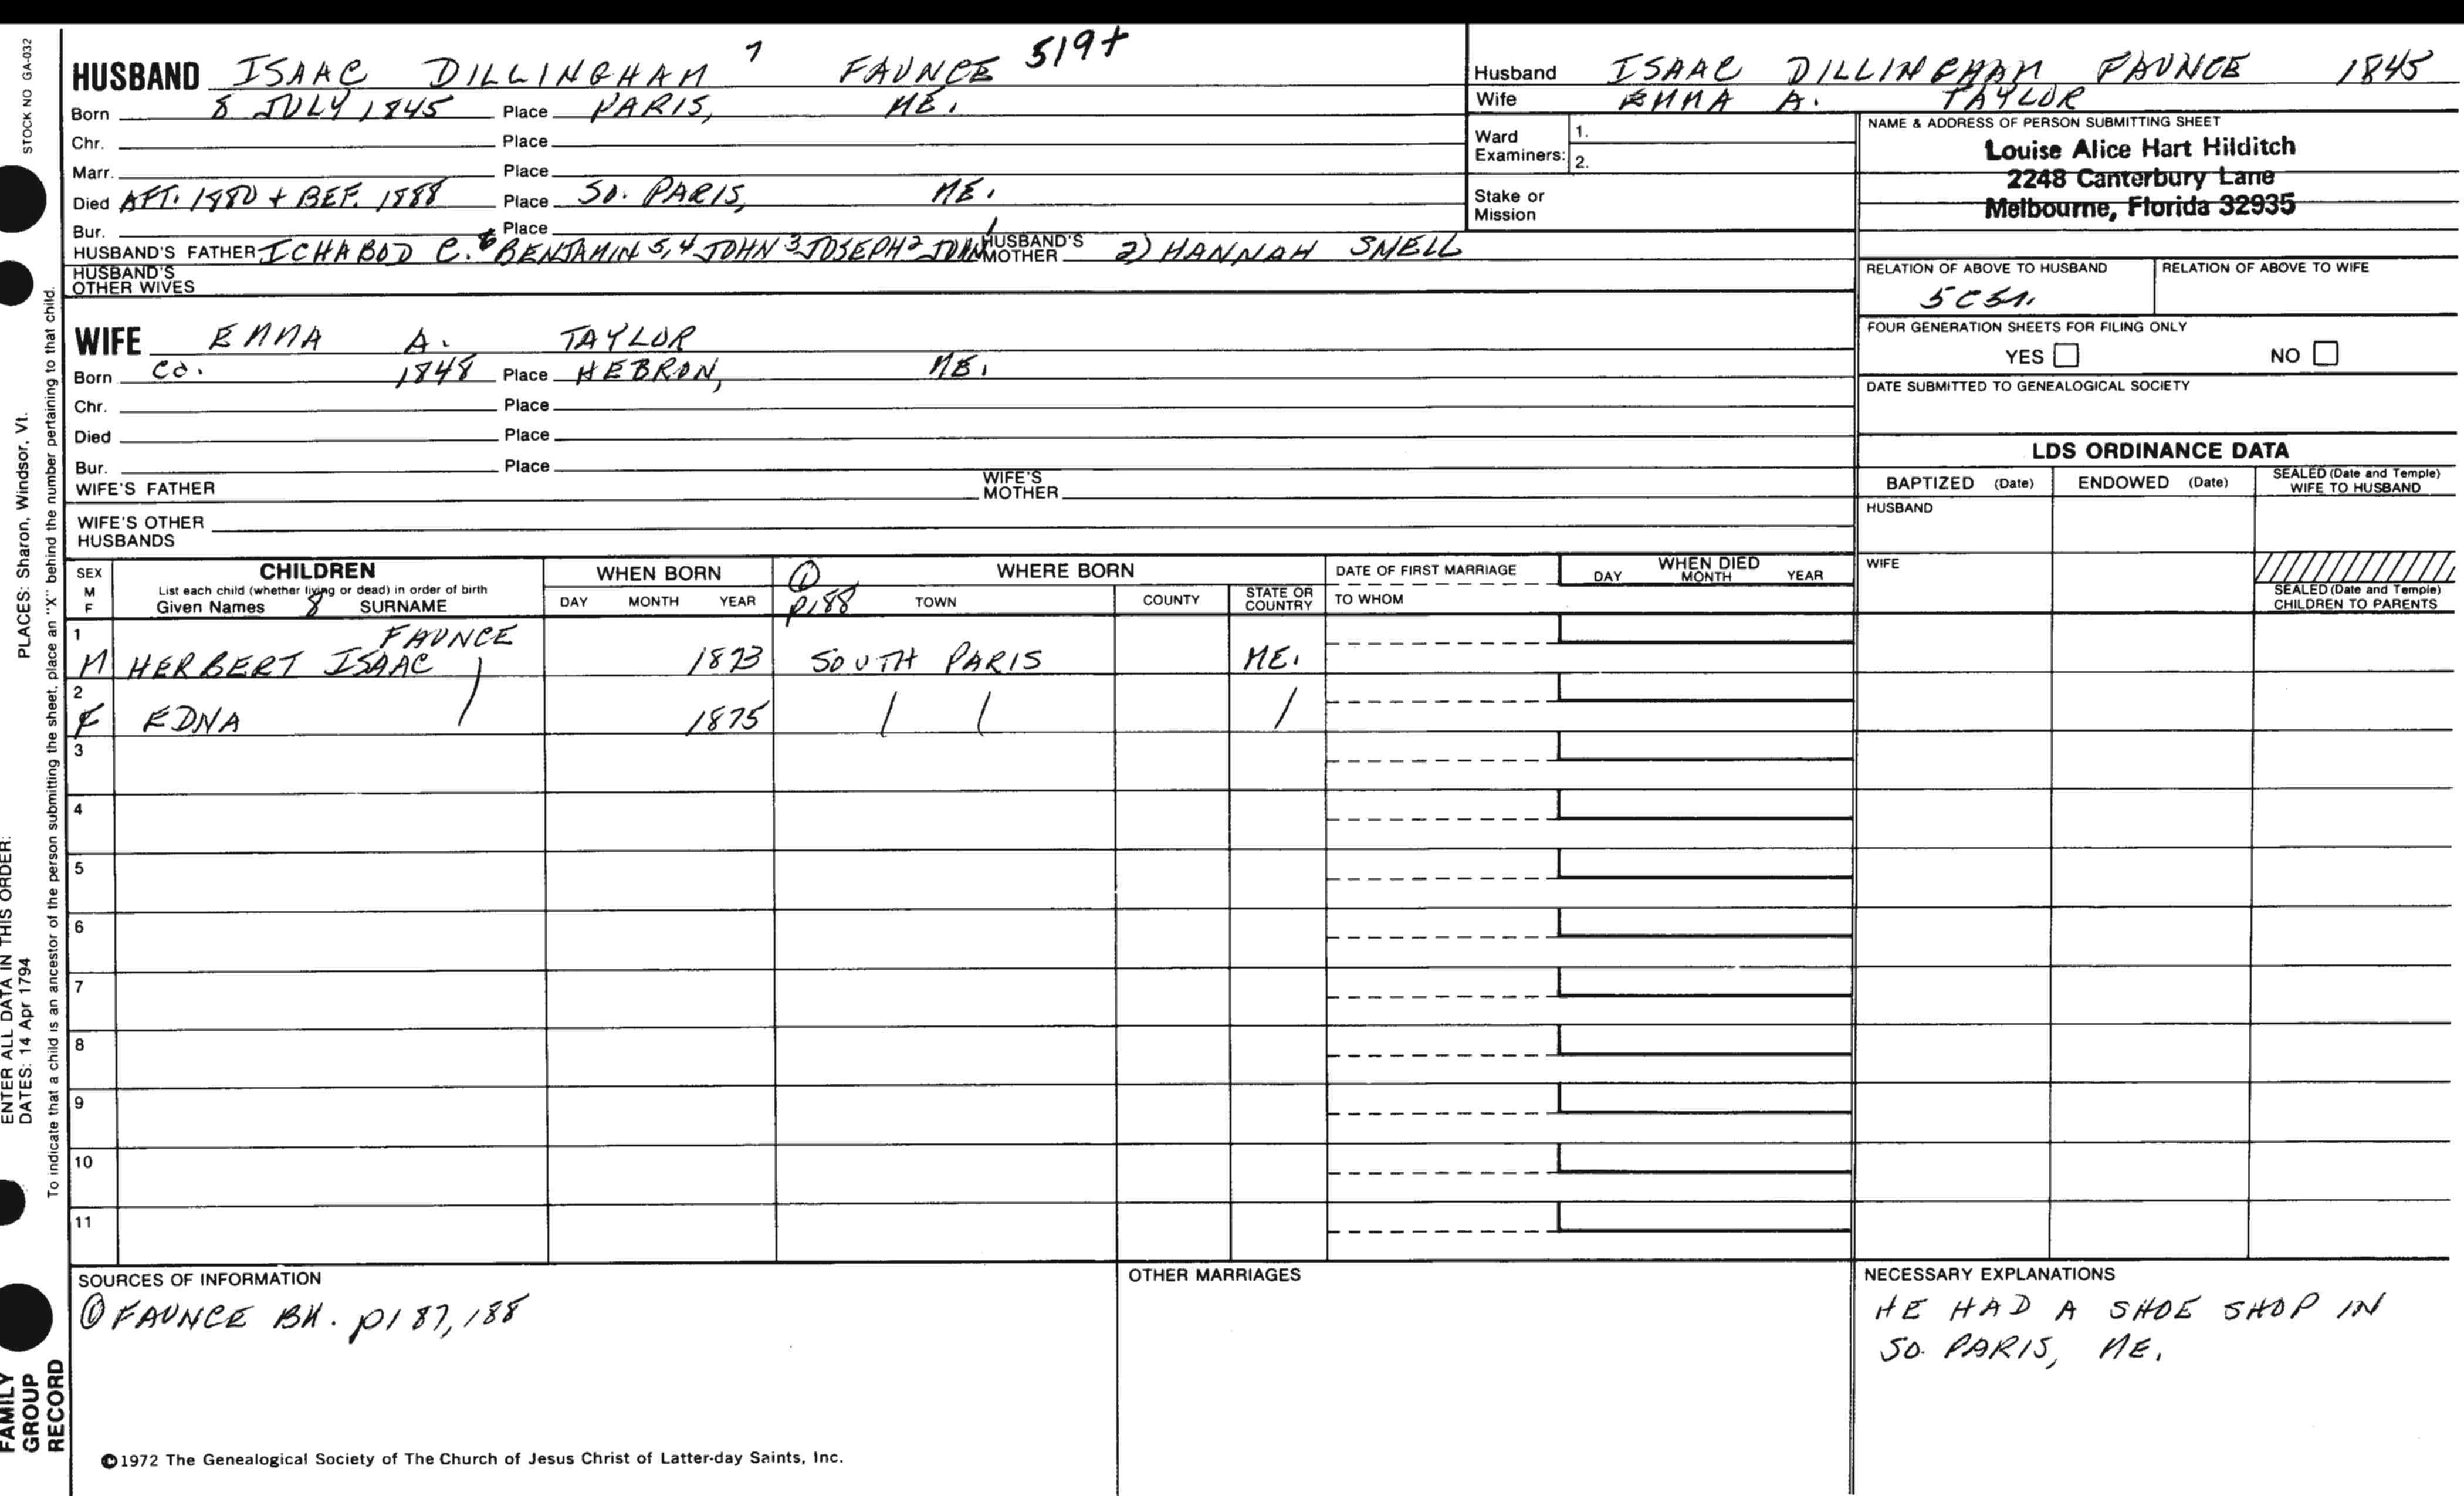 STOCK NO GA-032
HUSBAND ISAAC DILLINGHAM 7 FAUNCE 519+
Born 8 JULY 1845 Place PARIS, ME.
Chr. Place
Marr. Place
Died AFT. 1880 + BEF. 1888 Place SO. PARIS, ME.
Bur. Place
HUSBAND'S FATHER ICHABOD C. 6 BENJAMIN 5,4 JOHN 3 JOSEPH 2 JOHN 1 HUSBAND'S MOTHER 2) HANNAH SNELL
HUSBAND'S OTHER WIVES
WIFE EMMA A. TAYLOR
Born CA. 1848 Place HEBRON, ME.
Chr. Place
Died Place
Bur. Place
WIFE'S FATHER WIFE'S MOTHER
WIFE'S OTHER HUSBANDS
Husband ISAAC DILLINGHAM FAUNCE 1845
Wife EMMA A. TAYLOR
Ward Examiners: 1.
2.
Stake or Mission
NAME & ADDRESS OF PERSON SUBMITTING SHEET
Louise Alice Hart Hilditch
2248 Canterbury Lane
Melbourne, Florida 32935
RELATION OF ABOVE TO HUSBAND RELATION OF ABOVE TO WIFE
5C5R.
FOUR GENERATION SHEETS FOR FILING ONLY
YES NO
DATE SUBMITTED TO GENEALOGICAL SOCIETY
LDS ORDINANCE DATA
BAPTIZED (Date) ENDOWED (Date) SEALED (Date and Temple) WIFE TO HUSBAND
HUSBAND
WIFE
SEALED (Date and Temple) CHILDREN TO PARENTS
SEX M F
CHILDREN
List each child (whether living or dead) in order of birth
Given Names 8 SURNAME
WHEN BORN
DAY MONTH YEAR
① p188
WHERE BORN
TOWN COUNTY STATE OR COUNTRY
DATE OF FIRST MARRIAGE
TO WHOM
WHEN DIED
DAY MONTH YEAR
1 FAUNCE
M HERBERT ISAAC 1873 SOUTH PARIS ME.
2
F EDNA 1875
3
4
5
6
7
8
9
10
11
SOURCES OF INFORMATION
① FAUNCE BK. p187,188
OTHER MARRIAGES
NECESSARY EXPLANATIONS
HE HAD A SHOE SHOP IN
SO. PARIS, ME.
©1972 The Genealogical Society of The Church of Jesus Christ of Latter-day Saints, Inc.
ENTER ALL DATA IN THIS ORDER:
DATES: 14 Apr 1794
PLACES: Sharon, Windsor, Vt.
To indicate that a child is an ancestor of the person submitting the sheet, place an "X" behind the number pertaining to that child.
FAMILY
GROUP
RECORD